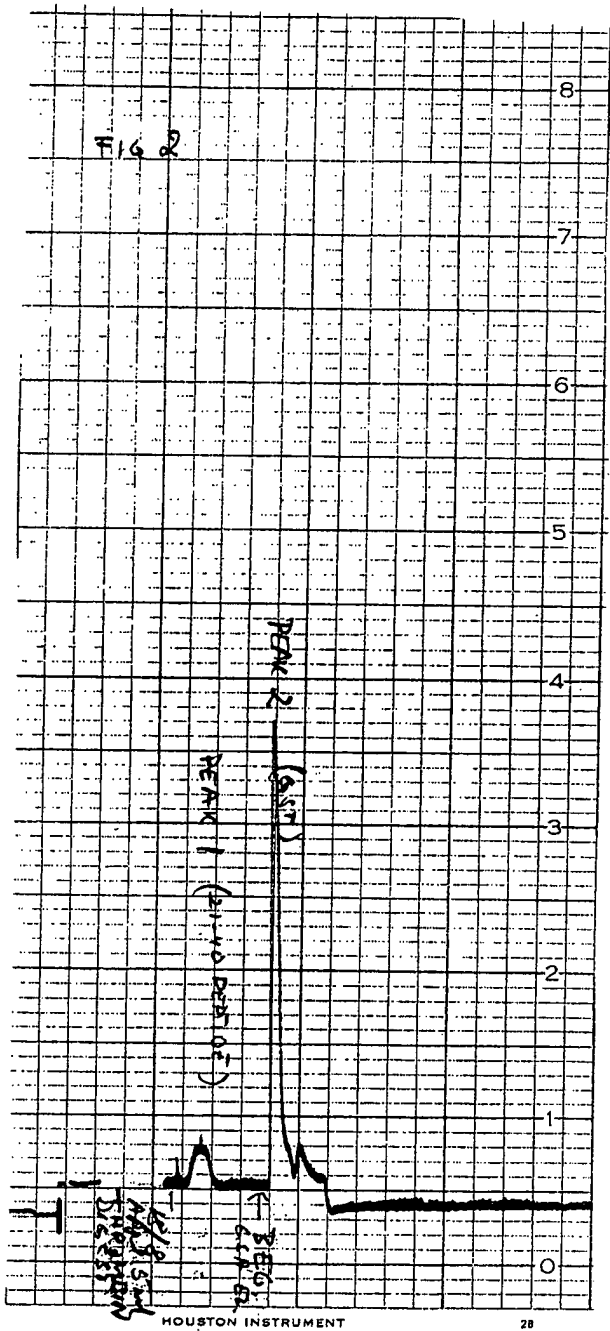 FIG 2
8
7
6
5
4
3
2
1
0
PEAK 2 (GST)
PEAK 1 (21-40 PEPTIDE)
← BEG.
THROMBIN
DIGEST
HOUSTON INSTRUMENT
28